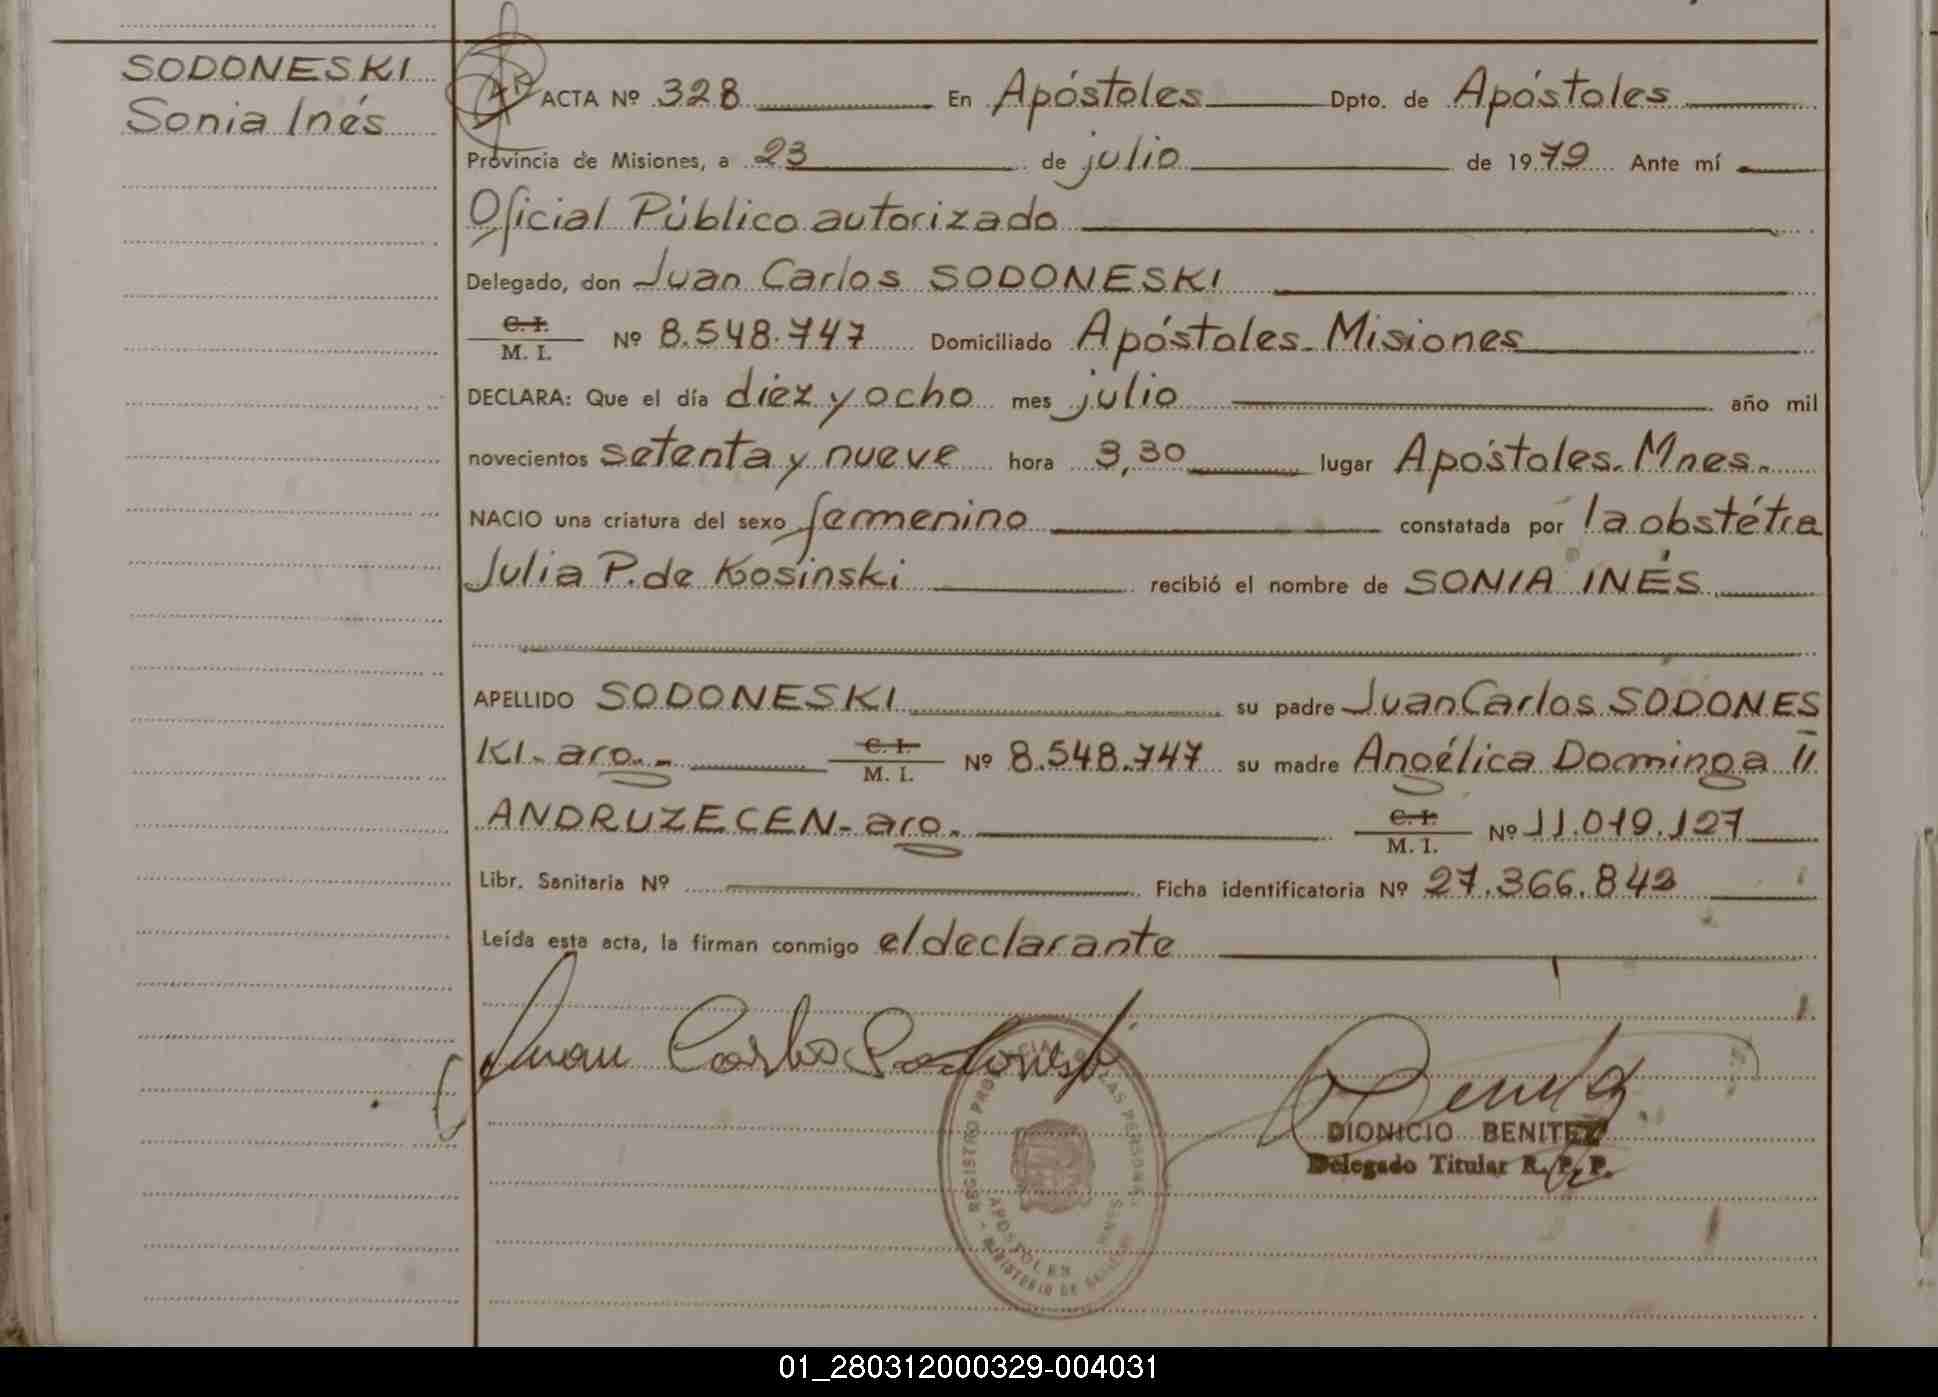 SODONESKI
Sonia Inés
ACTA Nº 328 En Apóstoles Dpto. de Apóstoles
Provincia de Misiones, a 23 de julio de 1979 Ante mí
Oficial Público autorizado
Delegado, don Juan Carlos SODONESKI
C. I.
M. I. Nº 8.548.747 Domiciliado Apóstoles. Misiones
DECLARA: Que el día diez y ocho mes julio año mil
novecientos setenta y nueve hora 3,30 lugar Apóstoles. Mnes.
NACIO una criatura del sexo femenino constatada por la obstétra
Julia P. de Kosinski recibió el nombre de SONIA INÉS
APELLIDO SODONESKI su padre Juan Carlos SODONES
KI. arg.- C. I. M. I. Nº 8.548.747 su madre Angélica Dominga
ANDRUZECEN- arg. C. I. M. I. Nº 11.019.127
Libr. Sanitaria Nº Ficha identificatoria Nº 27.366.842
Leída esta acta, la firman conmigo el declarante
Juan Carlos Sodoneski
DIONICIO BENITEZ
Delegado Titular R. P. P.
REGISTRO PROVINCIAL DE LAS PERSONAS
APOSTOLES MNES
MINISTERIO DE
01_280312000329-004031